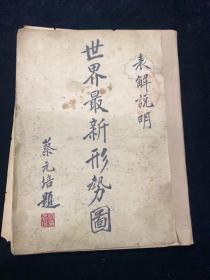 表解說明
世界最新形勢圖
蔡元培題